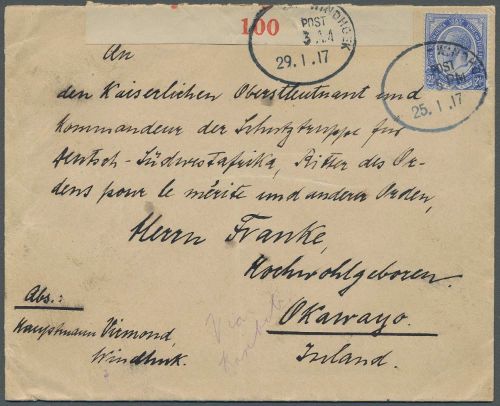 100
WINDHOEK
POST
29.1.17
WINDHO
POST
25.1.17
An
den Kaiserlichen Oberstleutnant und
Kommandeur der Schutztruppe für
Deutsch-Südwestafrika, Ritter des Or-
dens pour le mérite und anderer Orden,
Herrn Franke,
Hochwohlgeboren.
Okawayo.
Inland.
Abs.:
Hauptmann Virmond,
Windhuk.
Via